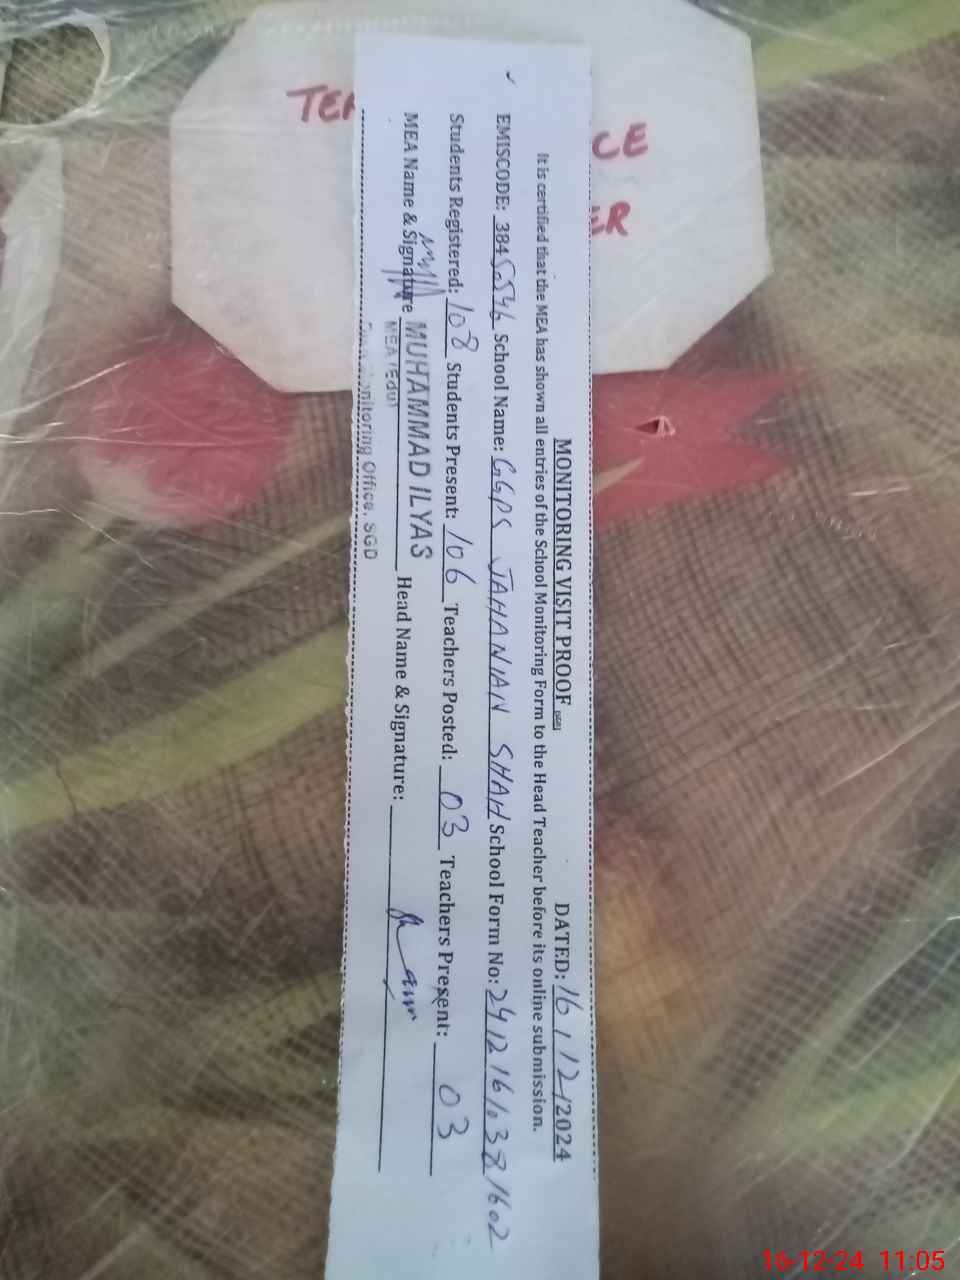 MONITORING VISIT PROOF DATED: 16/12/2024
It is certified that the MEA has shown all entries of the School Monitoring Form to the Head Teacher before its online submission.
EMISCODE: 384 School Name: GGPS JAHANIAN SHAH School Form No:
Students Registered: 108 Students Present: 106 Teachers Posted: 03 Teachers Present: 03
MEA Name & Signature MUHAMMAD ILYAS Head Name & Signature:
MEA (Edu)
Monitoring Office, SGD
CE
ER
16-12-24 11:05